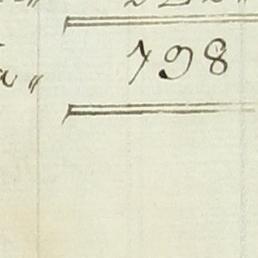 a " 798